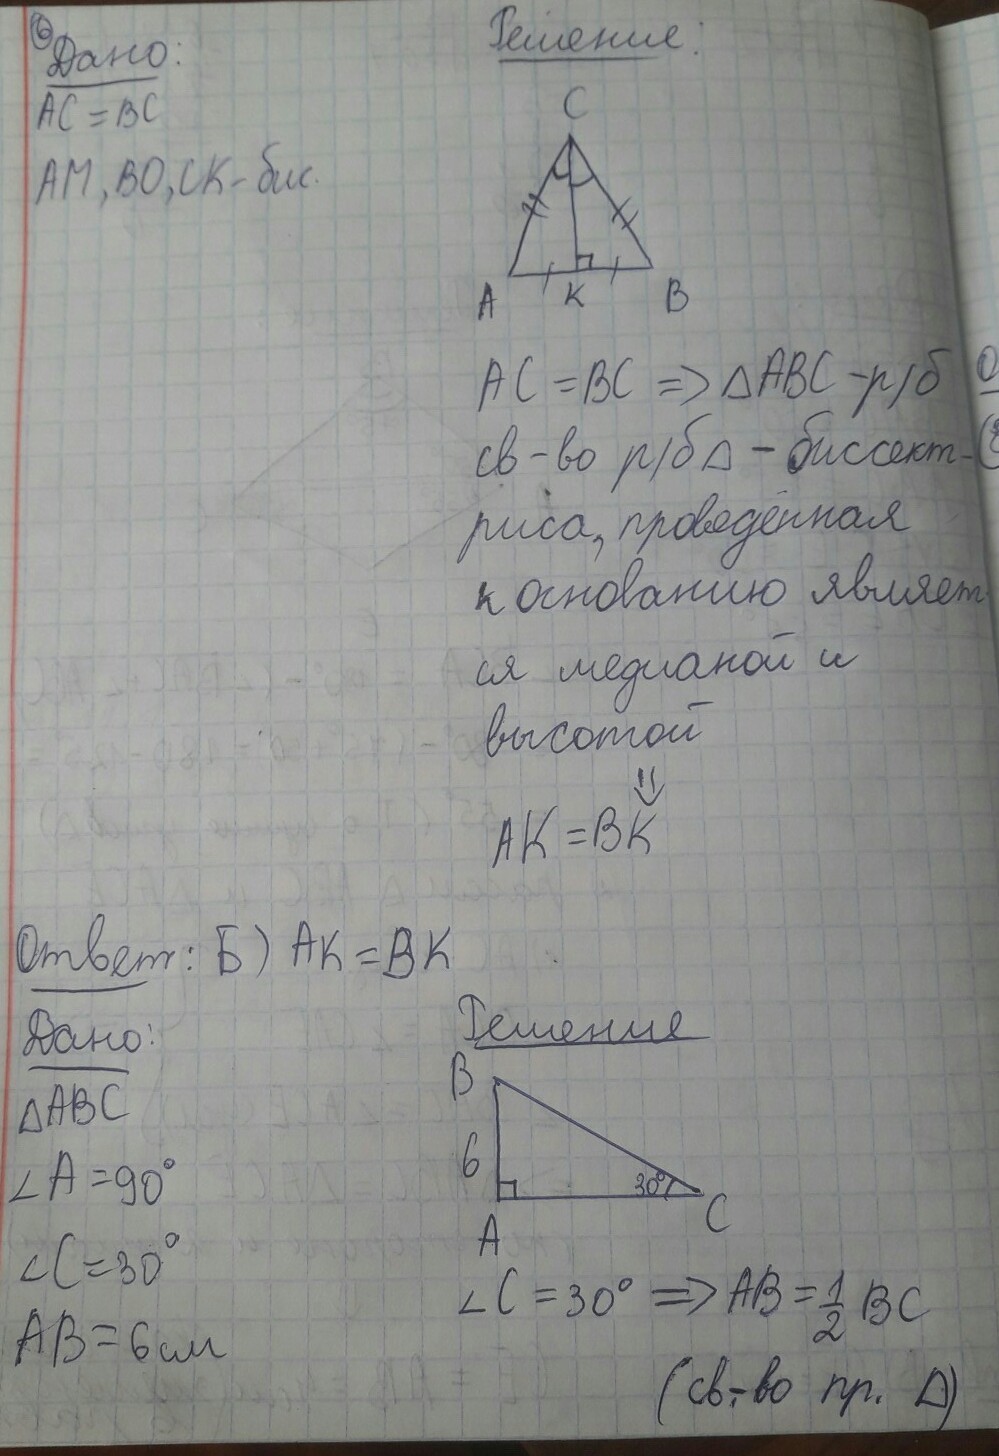 ⑥
Дано:
AC = BC
AM, BO, CK - бис.
Решение:
C
A K B
AC = BC => △ABC - р/б
св-во р/б △ - биссект-
риса, проведённая
к основанию являет
ся медианой и
высотой
⇓
AK = BK
Ответ: Б) AK = BK
Дано:
△ABC
∠A = 90°
∠C = 30°
AB = 6 см
Решение
B
6
30°
A
C
∠C = 30° => AB = 1/2 BC
(св-во пр. △)